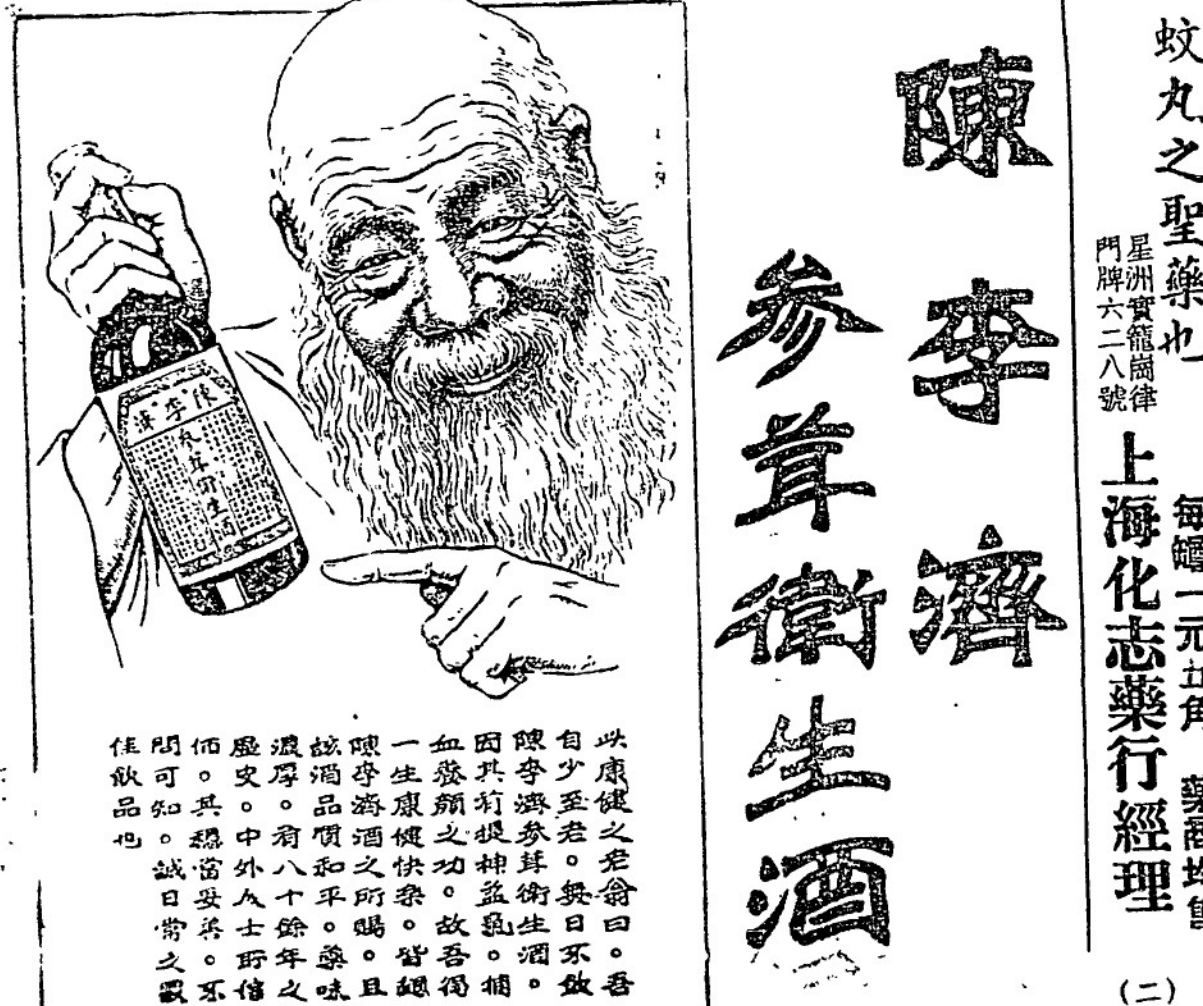 蚊丸之聖藥也
每罐一元五角 藥商均售
星洲實籠崗律
門牌六二八號
上海化志藥行經理
(二)
陳李濟
參茸衛生酒
陳李濟
參茸衛生酒
此康健之老翁曰。吾
自少至老。無日不飲
陳李濟參茸衛生酒。
因其有提神益氣。補
血養顏之功。故吾得
一生康健快樂。皆
陳李濟酒之所賜。且
該酒品質和平。藥味
濃厚。有八十餘年之
歷史。中外人士所信
仰。其穩當妥善。不
問可知。誠日常之最
佳飲品也